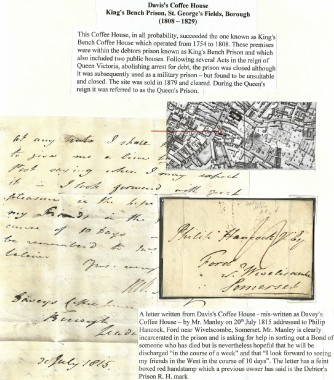 Davis's Coffee House
King's Bench Prison, St. George's Fields, Borough
(1808 – 1829)
This Coffee House, in all probability, succeeded the one known as King's
Bench Coffee House which operated from 1754 to 1808. These premises
were within the debtors prison known as King's Bench Prison and which
also included two public houses. Following several Acts in the reign of
Queen Victoria, abolishing arrest for debt, the prison was closed although
it was subsequently used as a military prison – but found to be unsuitable
and closed. The site was sold in 1879 and cleared. During the Queen's
reign it was referred to as the Queen's Prison.
at any rate I shall
to give me a line
Post saying when I may expect
it – I look forward with great
pleasure in the hope
my friends in the
course of 10 days
be remembered to
believe
Borough
20 July 1815
Philip Hancock Esq
Ford
Nr Wivelscombe
Somerset
A letter written from Davis's Coffee House - mis-written as Davey's
Coffee House – by Mr. Manley on 20th July 1815 addressed to Philip
Hancock, Ford near Wivelscombe, Somerset. Mr. Manley is clearly
incarcerated in the prison and is asking for help in sorting out a Bond of
someone who has died but is nevertheless hopeful that he will be
discharged "in the course of a week" and that "I look forward to seeing
my friends in the West in the course of 10 days". The letter has a feint
boxed red handstamp which a previous owner has said is the Debtor's
Prison R. H. mark